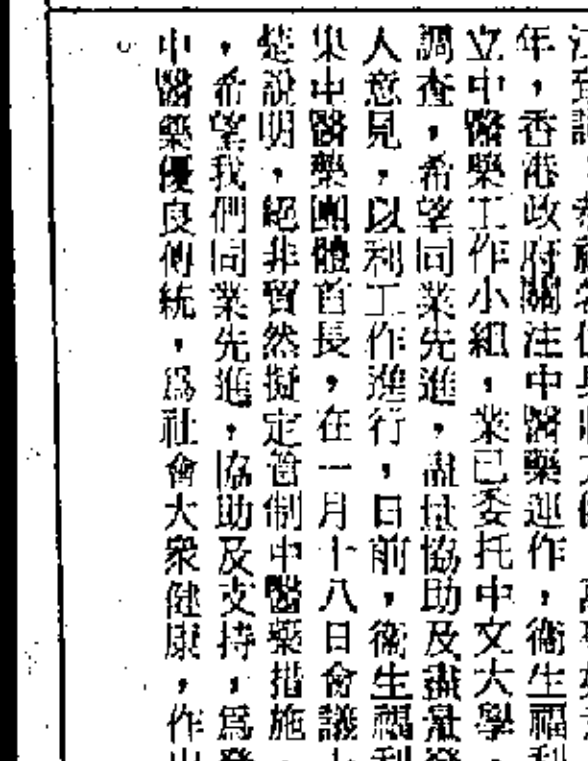 年，香港政府關注中醫藥運作，衞生福利
立中醫藥工作小組，業已委托中文大學，
調查，希望同業先進，盡量協助及盡量發
人意見，以利工作進行，日前，衞生福利
集中醫藥團體首長，在一月十八日會議上
楚說明，絕非貿然擬定管制中醫藥措施，
，希望我們同業先進，協助及支持，爲發
中醫藥優良傳統，爲社會大衆健康，作出
。